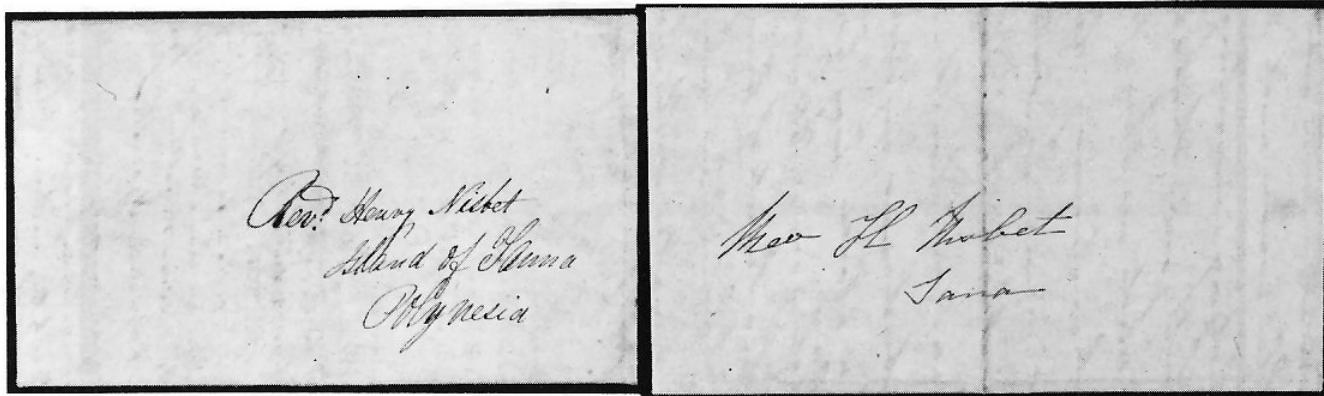 Revd. Henry Nisbet
Island of Tanna
Polynesia
Mrs H Nisbet
Tana